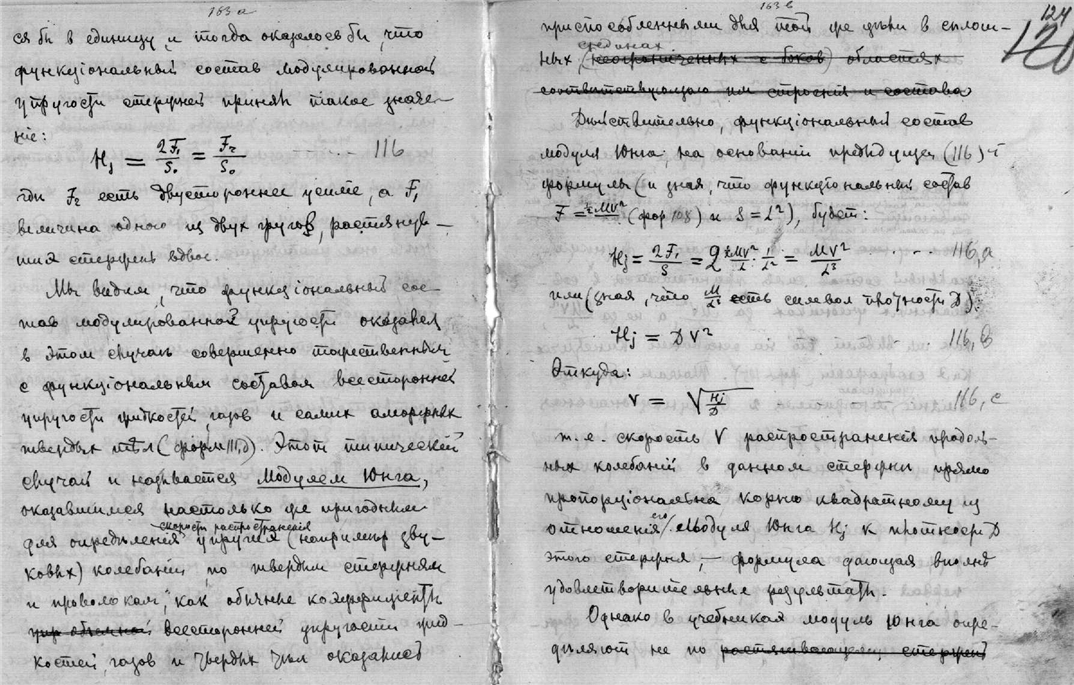 163 a
ся бы в единицу, и тогда оказалось бы, что
функціональный состав модулированной
упругости стержней принял такое значе-
ніе:
Hj = 2F₁/S₀ = F₂/S₀ - - - 116
где F₂ есть двустороннее усиліе, а F₁
величина одного из двух грузов, растянув-
ших стержень вдвое.
Мы видим, что функціональный сос-
тав модулированной упругости оказался
в этом случаѣ совершенно тожественным
с функціональным составом всесторонней
упругости жидкостей, газов и самих аморфных
твердых тѣл (форм III, b). Этот типический
случай и называется Модулем Юнга,
оказавшимся настолько же пригодным
скорости распространенія
для опредѣленія упругих (например зву-
ковых) колебаній по твердым стержням
и проволокам, как обычные коэффиціенты
всесторонней упругости жид-
костей, газов и твердых тѣл оказались
163 b
124
120
приспособленными для той же цѣли в сплош-
срединах
ных (неограниченных с боков) областях
соответствующаго им строенія и состава
Дѣйствительно, функціональный состав
модуля Юнга, на основаніи предыдущей (116)
формулы (и зная, что функціональный состав
F = εMV² (фор 108) и S = L²), будет:
Hj = 2F₁/S = 2 εMV²/L · 1/L² = MV²/L³ - - - 116, a
или (зная, что M/L³ есть символ плотности D):
Hj = D V² 116, b
Откуда:
V = √Hj/D 116, c
т. е. скорость V распространенія продоль-
ных колебаній в данном стержнѣ прямо
пропорціональна корню квадратному из
отношенія его Модуля Юнга Hj к плотности D
этого стержня, — формула дающая вполнѣ
удовлетворительные результаты.
Однако в учебниках модуль Юнга опре-
дѣляют не по растягивающему стержень